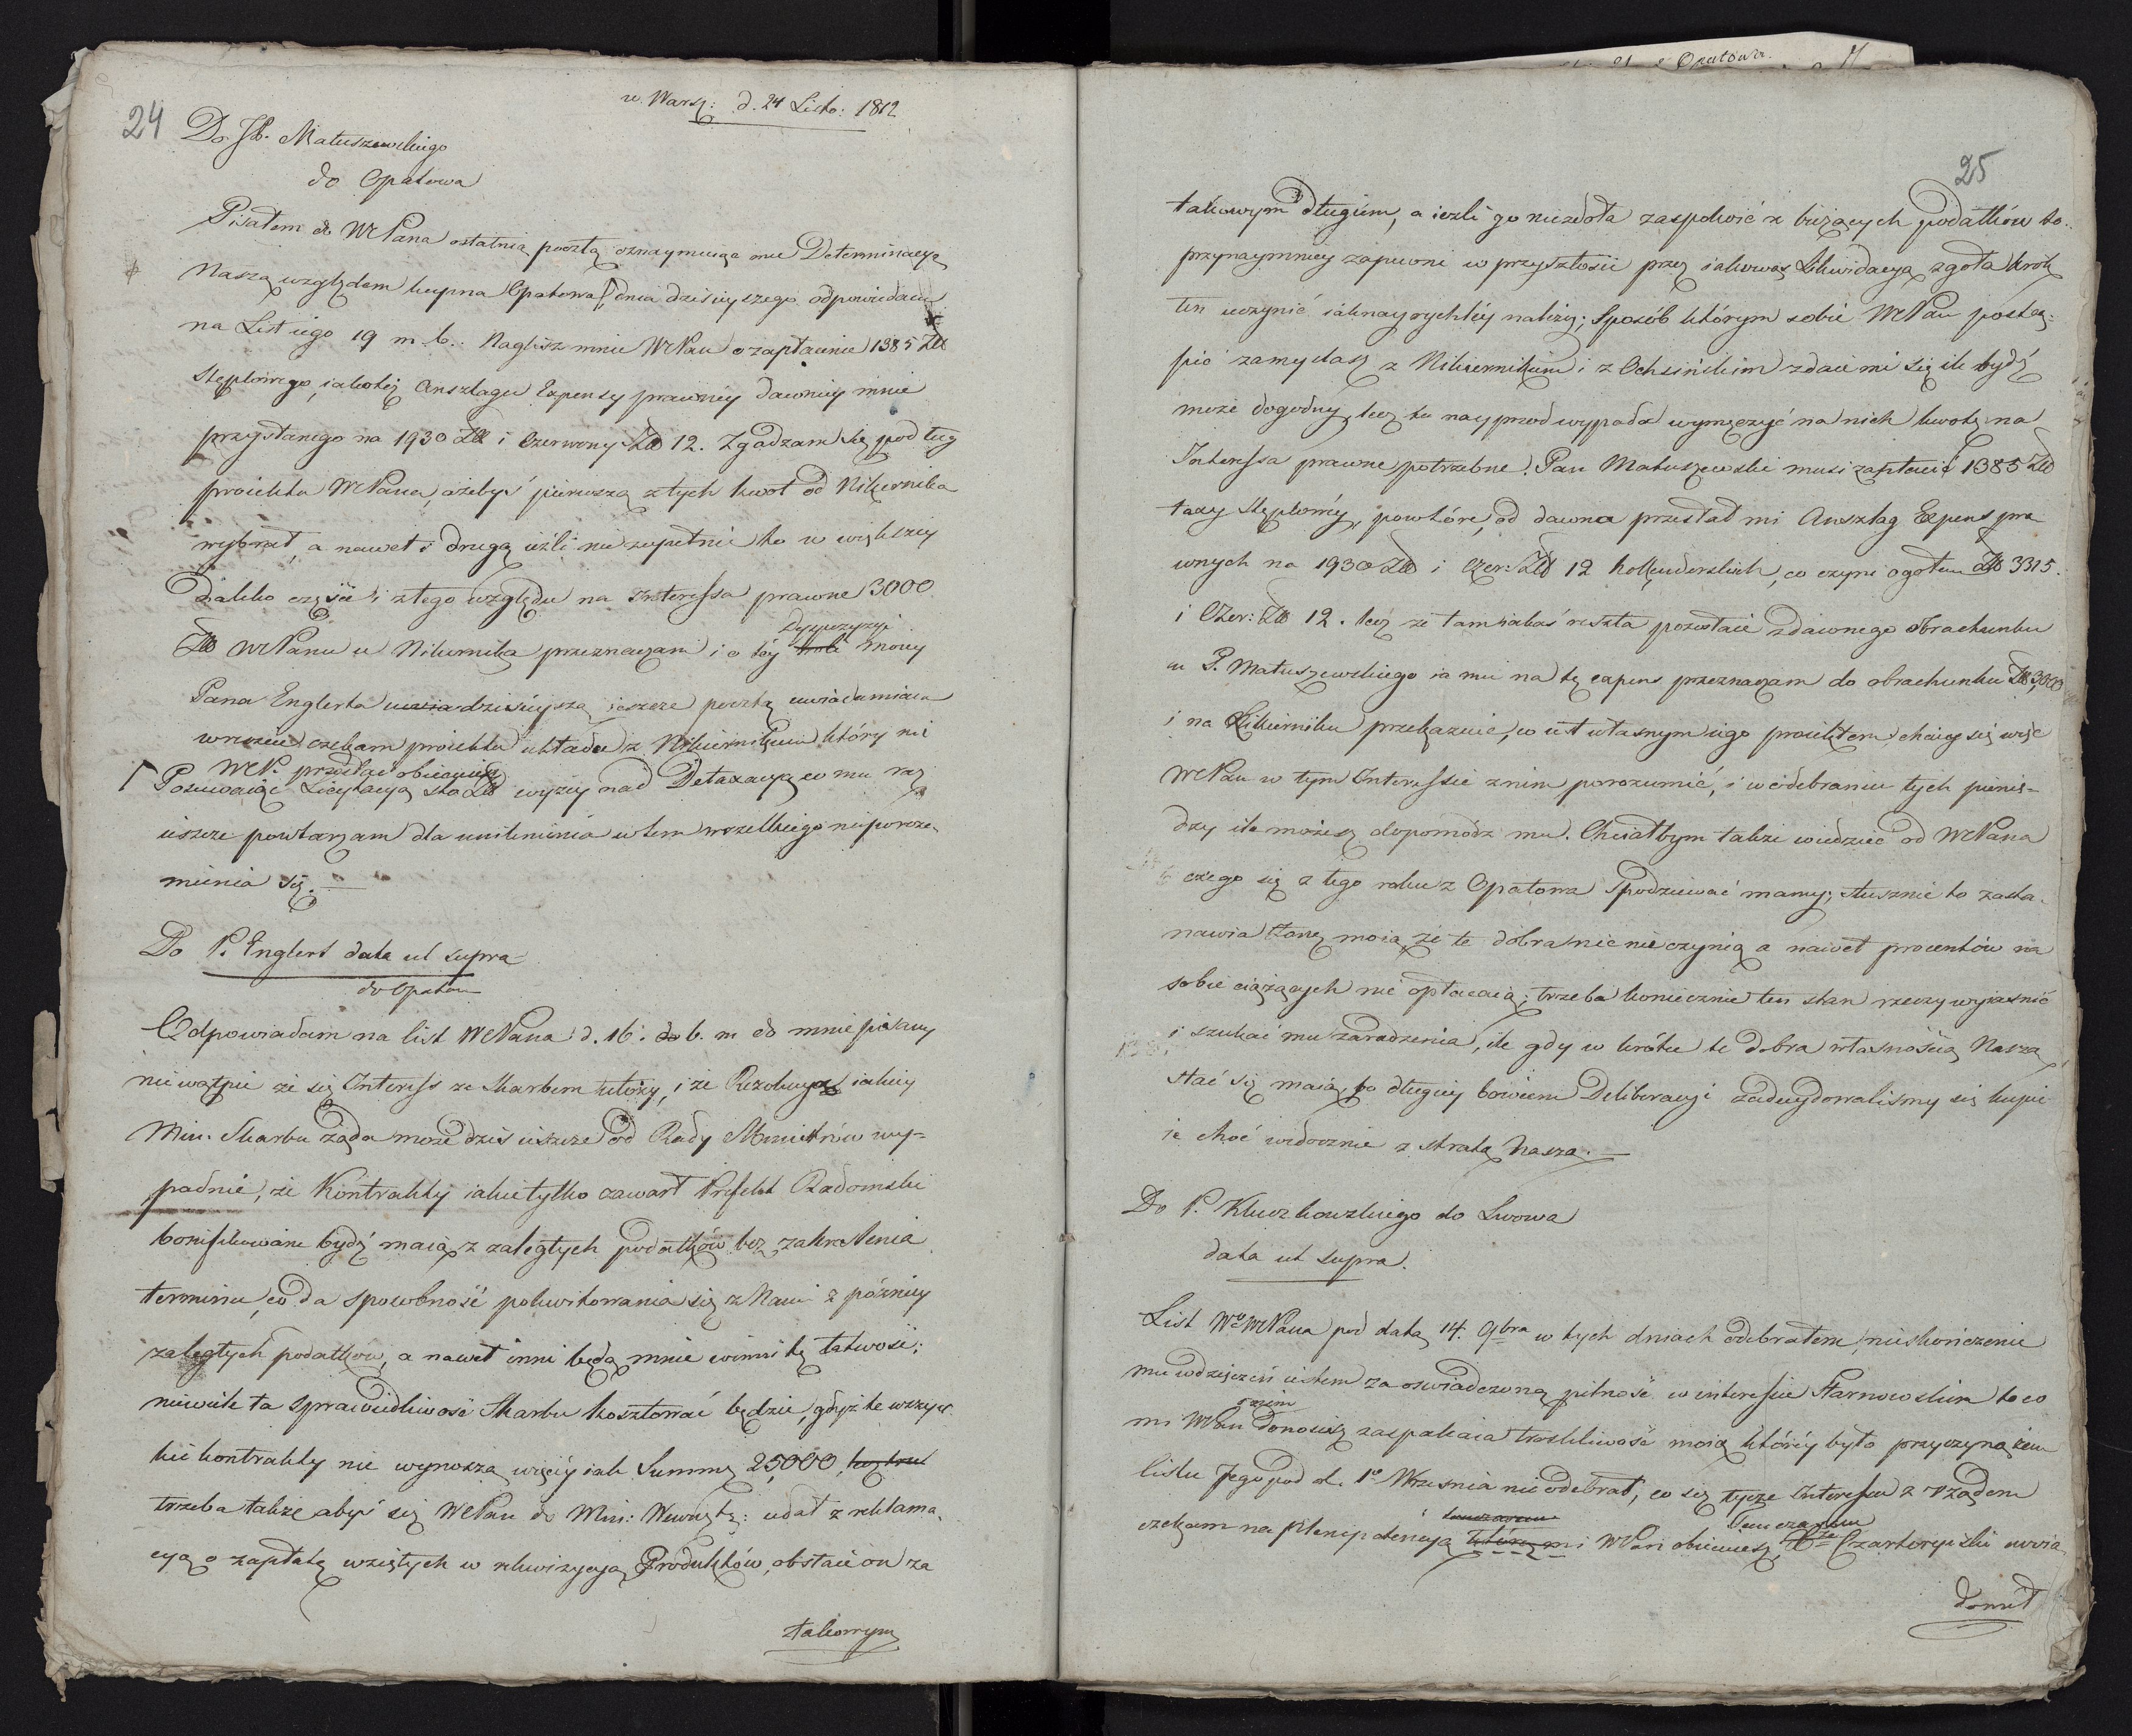 24
w Warsz: d. 24 Listo: 1812
Do JP. Matuszewskiego
do Opatowa
Pisałem do WPana ostatnią pocztą oznaymuiąc mu Determinacyę
Naszą względem kupna Opatowa, dnia dzisieyszego odpowiadam
na List iego 19 m. b. Naglisz mnie WPan o zapłacenie 1385 Złł
stęplowego, iakoteż Anszlagu Expensy prawney dawniey mnie
przysłanego na 1930 Złł i Czerwony Złł 12. Zgadzam się podług
proiektu WPana, ażebyś pierwszą z tych kwot od Nikiernika
wybrał, a nawet i drugą ieźli nie zupełnie to w większey
daleko części i z tego względu na Interessa prawne 3000
Złł WPanu u Nikiernika przeznaczam i o tey Dyspozycyi moiey
Pana Englerta dzisieyszą ieszcze pocztą uwiadamiam
wreszcie czekam proiektu układu z Nikiernikiem który mi
WP. przysłać obiecuiesz
Posuwaiąc Licytacyą sto Złł wyżey nad Detaxacyą co mu raz
ieszcze powtarzam dla uniknienia w tem wszelkiego nieporozu-
mienia się. —
Do P. Englert data ut supra
do Opatowa
Odpowiadam na list WPana d. 16. b. m do mnie pisany
nie wątpię że się Interess ze Skarbem ułoży, i że Rezolucya iakiey
Min. Skarbu żąda może dziś ieszcze od Rady Ministrów wy-
padnie, że Kontrakty iakie tylko zawarł Prefekt Radomski
bonifikowane bydź maią z zaległych podatków bez zakreślenia
terminu, co da sposobność pokwitowania się z Nami z pózniey
zaległych podatków, a nawet inni będą mnie winni tę łatwość;
niewiele ta sprawiedliwość Skarbu kosztować będzie, gdyż te wszyst
kie kontrakty nie wynoszą więcey iak Summę 25,000,
trzeba także abyś się WPan do Min: Wewnętz: udał z reklama-
cyą o zapłatę wziętych w rekwizycyą Produktów, obstaie on za
takowym
25
takowym długiem, a ieżli go niezdoła zaspokoić z bieżących podatków to
przynaymniey zapewni w przyszłości przez iakowąś Likwidacyą zgoła krok
ten uczynić iaknayrychley należy; Sposób którym sobie WPan postą-
pić zamyślasz z Nikiernikiem i z Ochsińskim zdaie mi się ile bydź
może dogodny, lecz tu nayprzod wypada wymęczyć na nich kwotę na
Interessa prawne potrzebne. Pan Matuszewski musi zapłacić 1385 Złł
taxy stęplowey, powtóre, od dawna przesłał mi Anszlag Expens pra
wnych na 1930 Złł i Czer: Złł 12 hollenderskich, co czyni ogółem Złł 3315.
i Czer: Złł 12. lecz że tam iakaś reszta pozostaie z dawnego obrachunku
u P. Matuszewskiego ia mu na tę expens przeznaczam do obrachunku Złł 3,000
i na Nikierniku przekazuię, co iest własnym iego proiektem, chciey się więc
WPan w tym Interessie z nim porozumić, i w odebraniu tych pienię-
dzy ile możesz dopomódz mu. Chciałbym także wiedzieć od WPana
czego się z tego roku z Opatowa spodziewać mamy; słusznie to zasta-
nawia Żonę moią, że te dobra nic nie czynią a nawet procentów na
sobie ciążących nie opłacaią; trzeba koniecznie ten stan rzeczy wyiaśnić
i szukać mu zaradzenia, ile gdy w krótce te dobra własnością Naszą
stać się maią, po długiey bowiem Deliberacyi zadecydowaliśmy się kupić
ie choć widocznie z stratą Naszą. —
Do P. Kluczkowskiego do Lwowa
data ut supra.
List WPana pod datą 14. 9bra w tych dniach odebrałem, nieskończenie
mu wdzięczen iestem za oświadczoną pilność w interesie Tarnowskim to co
mi WPan o nim donosisz zaspakaia troskliwość moią którey było przyczyną żem
listu Jego pod d. 1o Września nie odebrał, co się tycze Interessu z rządem
czekam na Plenipotencyą którą mi WPan obiecuiesz, Tymczasem Xże Czartoryiski uwia
domił